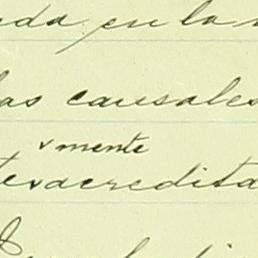 eda en la
las causales
vmente
tevacredita